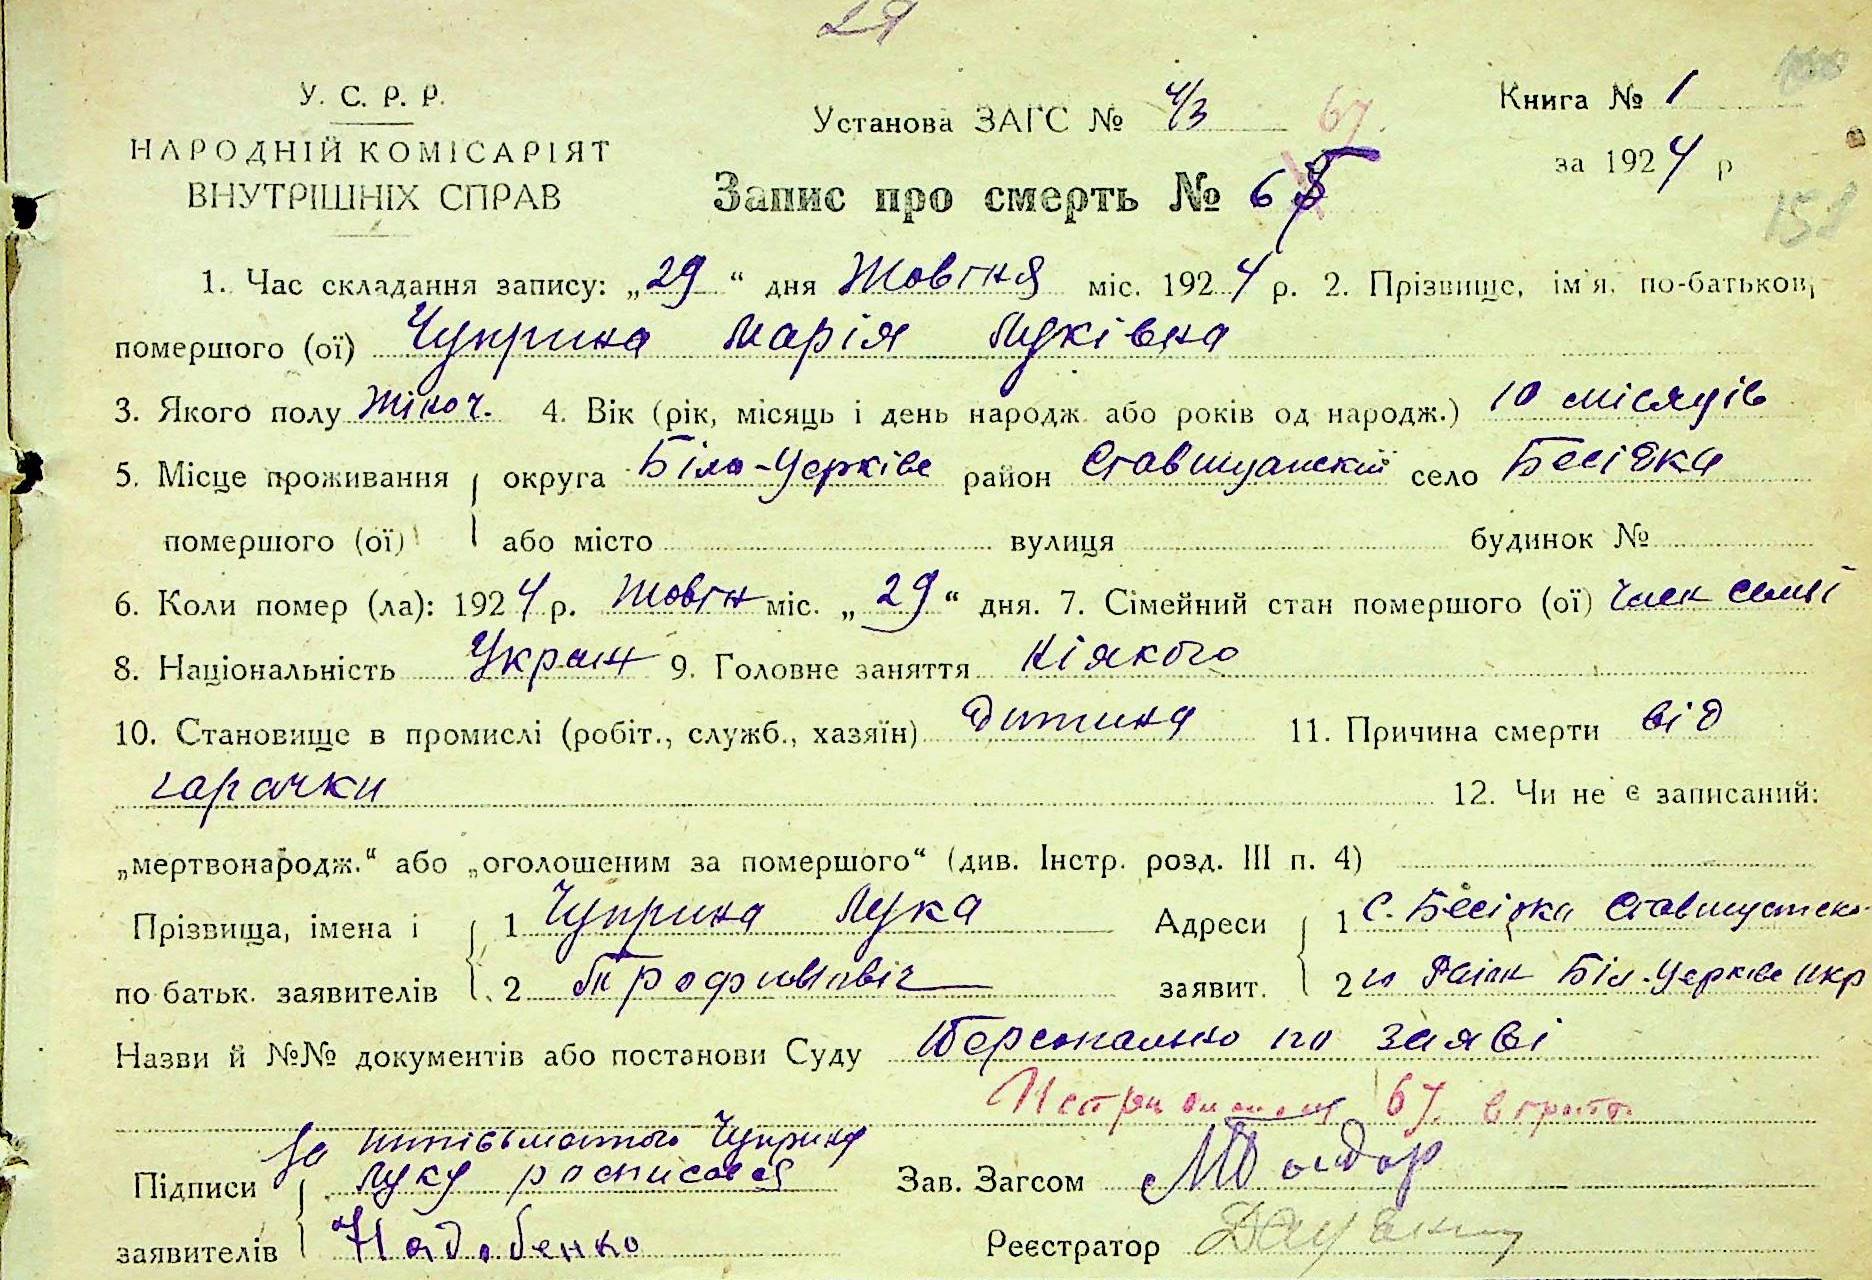 29
У. С. Р. Р.
НАРОДНІЙ КОМІСАРІЯТ
ВНУТРІШНІХ СПРАВ
Установа ЗАГС № 4/3 67.
Запис про смерть № 6
Книга № 1
за 1924 р
158
1. Час складання запису: „29“ дня Жовтня міс. 1924 р. 2. Прізвище, ім'я, по-батькові
помершого (ої) Чуприна Марія Луківна
3. Якого полу Жіноч. 4. Вік (рік, місяць і день народж. або років од народж.) 10 місяців
5. Місце проживання округа Біло-Церківс район Ставищанский село Бесідка
помершого (ої) або місто вулиця будинок №
6. Коли помер (ла): 1924 р. Жовтн міс. „29“ дня. 7. Сімейний стан помершого (ої) Член семиї
8. Національність Украин 9. Головне заняття Ніякого
10. Становище в промислі (робіт., служб., хазяїн) Дитина 11. Причина смерти від
гарачки 12. Чи не є записаний:
„мертвонародж.“ або „оголошеним за помершого“ (див. Інстр. розд. III п. 4)
Прізвища, імена і 1 Чуприна Лука Адреси 1 С. Бесідка
по батьк. заявителів 2 Трофимовіч заявит. 2 го Біл-Церківс окр
Назви й №№ документів або постанови Суду Персонально по заяві
67.
За Чуприну
Підписи Луку росписався Зав. Загсом
заявителів Надобенко Реєстратор